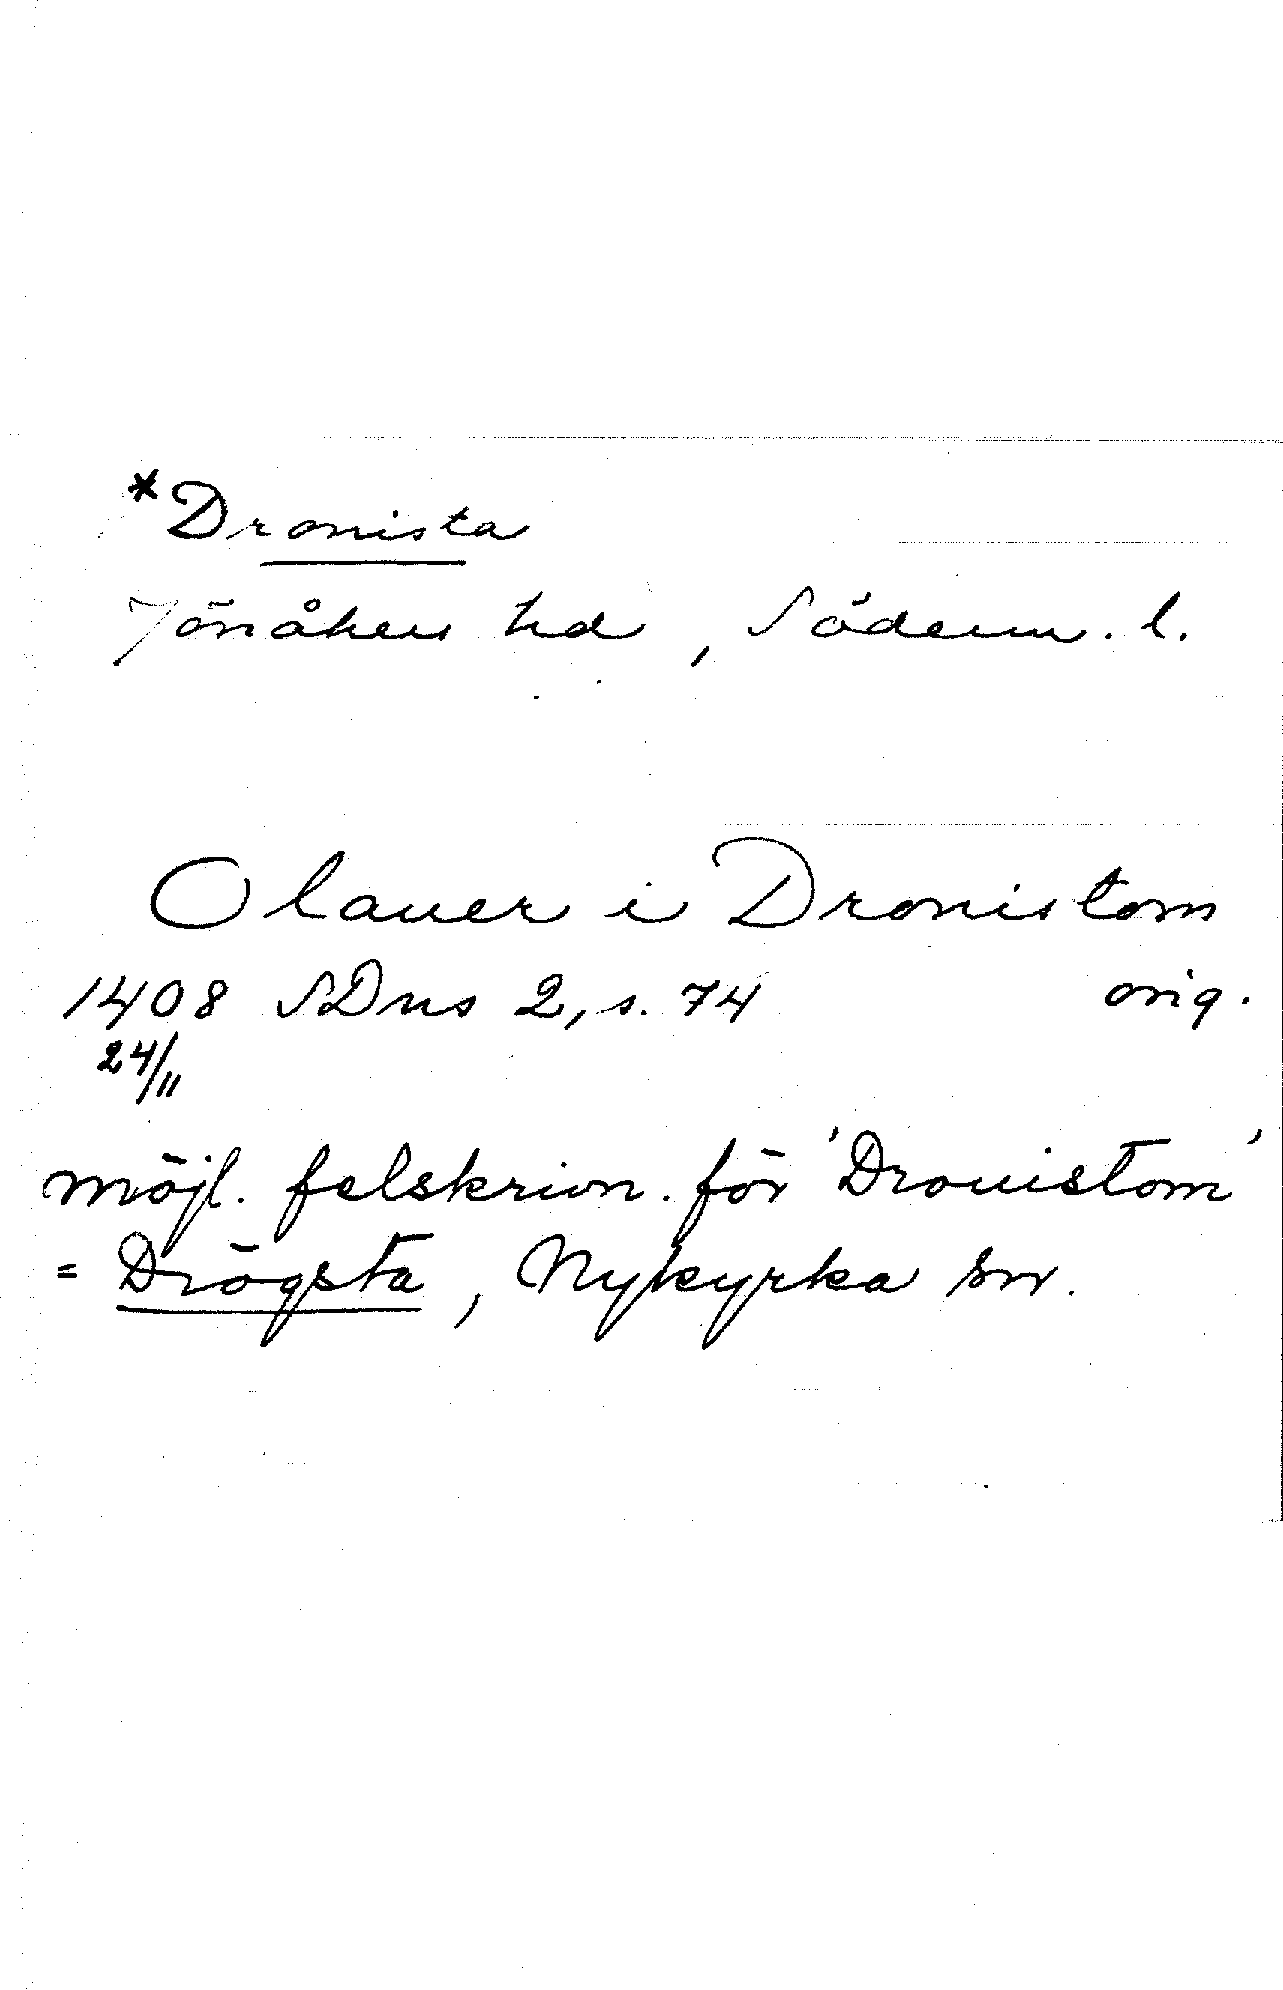 *Dronista
Jönåkers hd, Söderm. l.
Olauer i Dronistom
1408 SDns 2, s. 74 orig.
24/11
möjl. felskrivn. för 'Drouistom'
= Drögsta, Nykyrka sn.